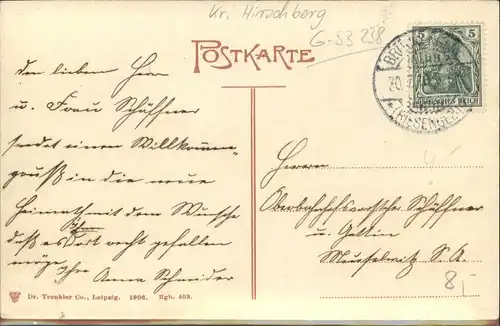 Kr. Hirschberg
G-53 238
POSTKARTE
5 5
DEUTSCHES REICH
(RIESENGEB.)
den lieben Herrn
u. Frau Schäffner
sendet einen Willkommen-
gruß in die neue
Heimath mit dem Wunsche
daß es Ihn dort recht gefallen
möge Ihre Anna Schneider
Herrn
Oberbahnhofsvorsteher Schäffner
u. Gattin
Meuselwitz S. A.
8,-
Dr. Trenkler Co., Leipzig. 1906. Hgb. 403.